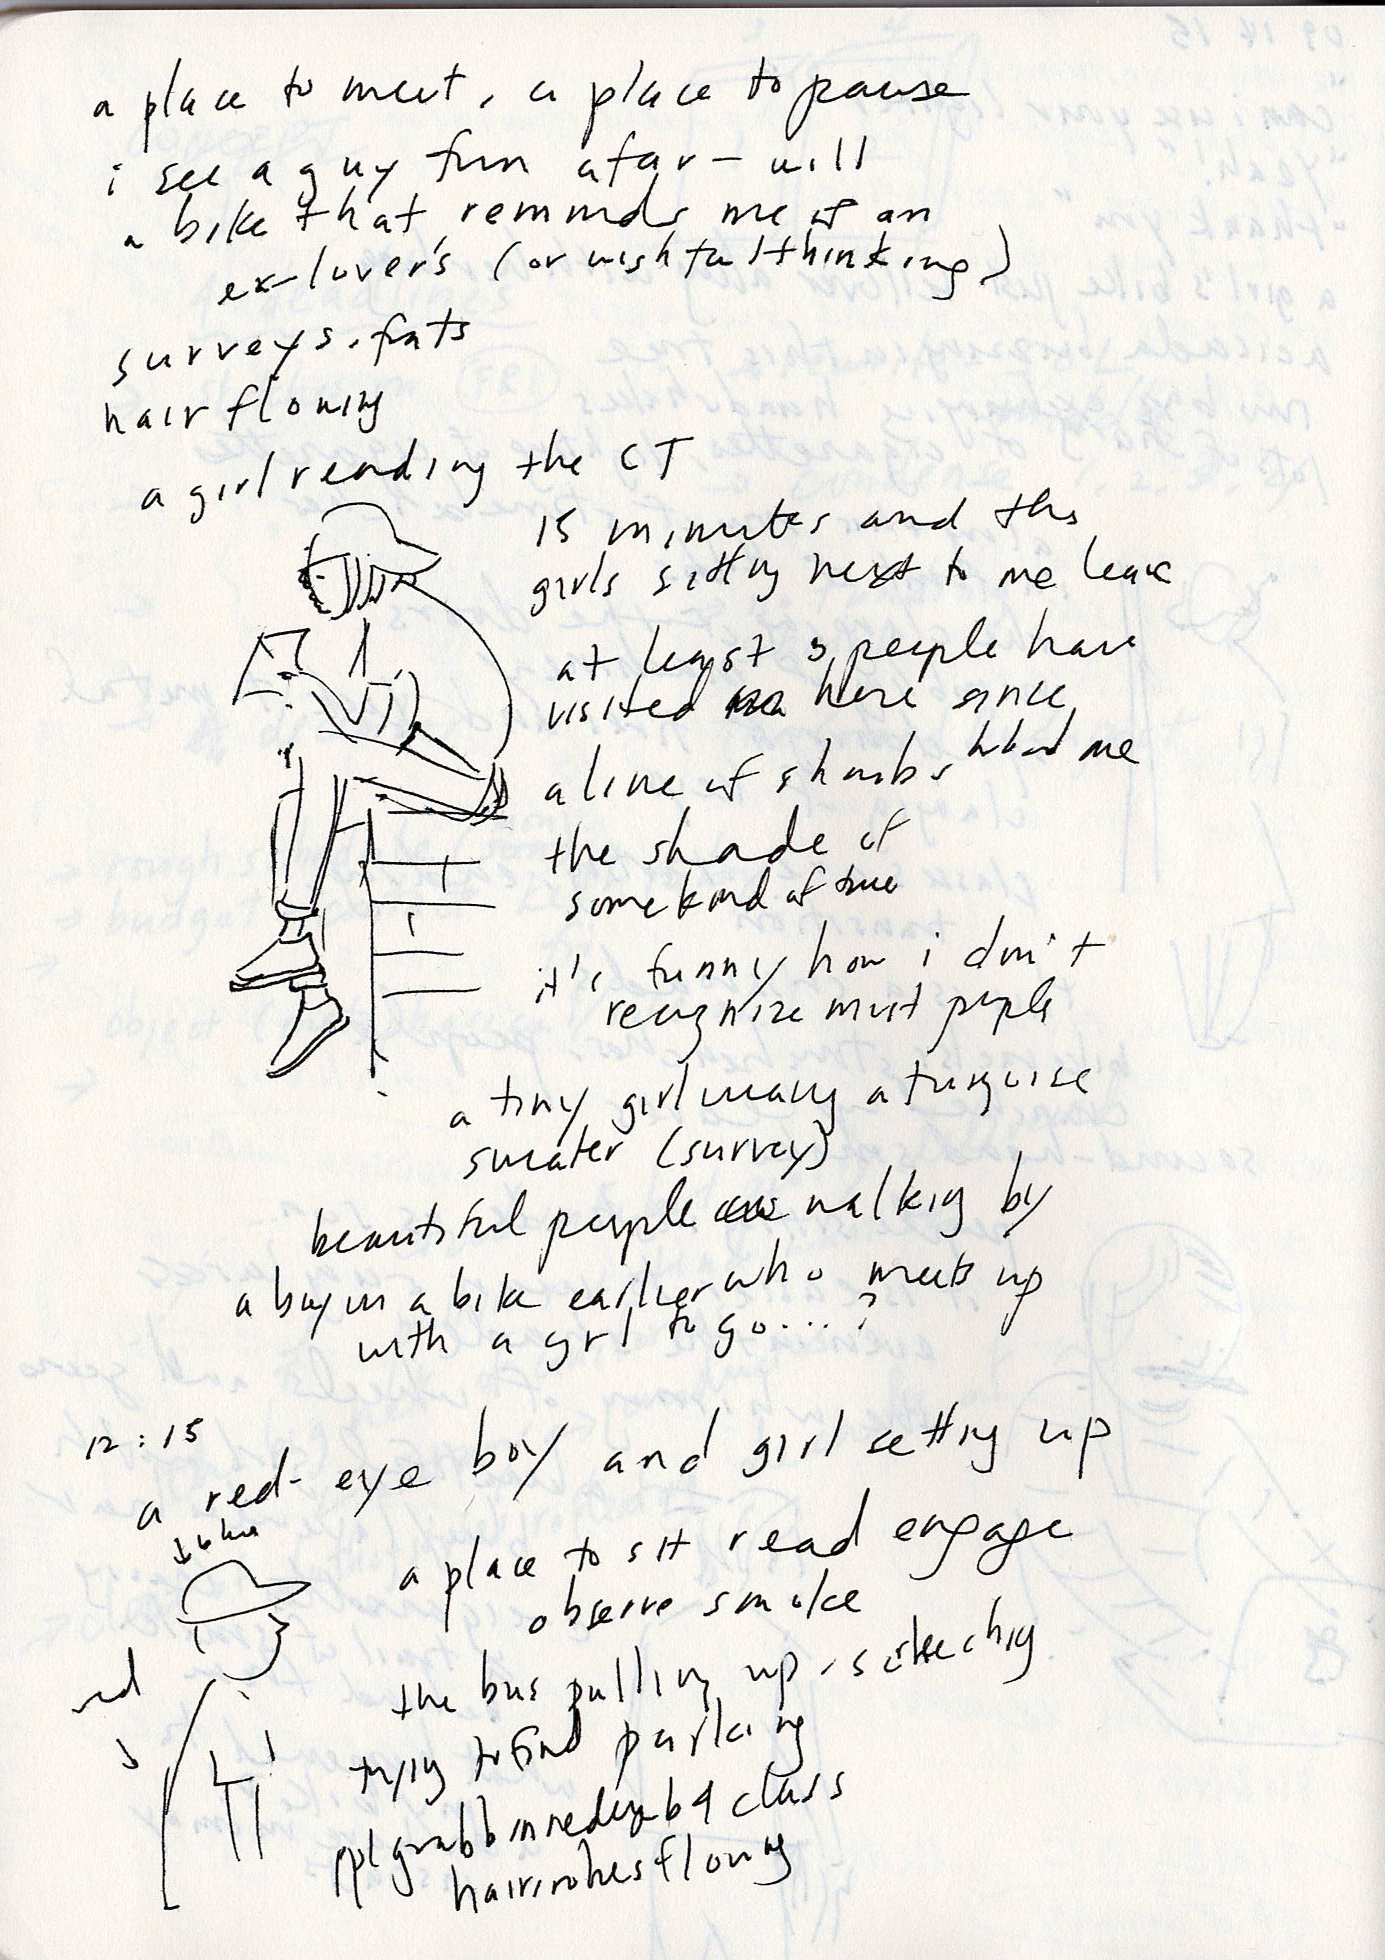 a place to meet, a place to pause
i see a guy from afar – with
a bike that reminds me of an
ex-lover's (or wishful thinking)
surveys.
hair flowing
a girl reading the CT
15 minutes and the
girls sitting next to me leave
at least 3 people have
visited here since
a line of shrubs behind me
the shade of
some kind of tree
it's funny how i don't
recognize most people
a tiny girl wearing a turquoise
sweater (survey)
beautiful people walking by
a boy on a bike earlier who meets up
with a girl to go....?
12:15
a red-eye boy and girl setting up
a place to sit read engage
observe smoke
red
the bus pulling up, screeching
trying to find parking
ppl b4 class
hair flowing